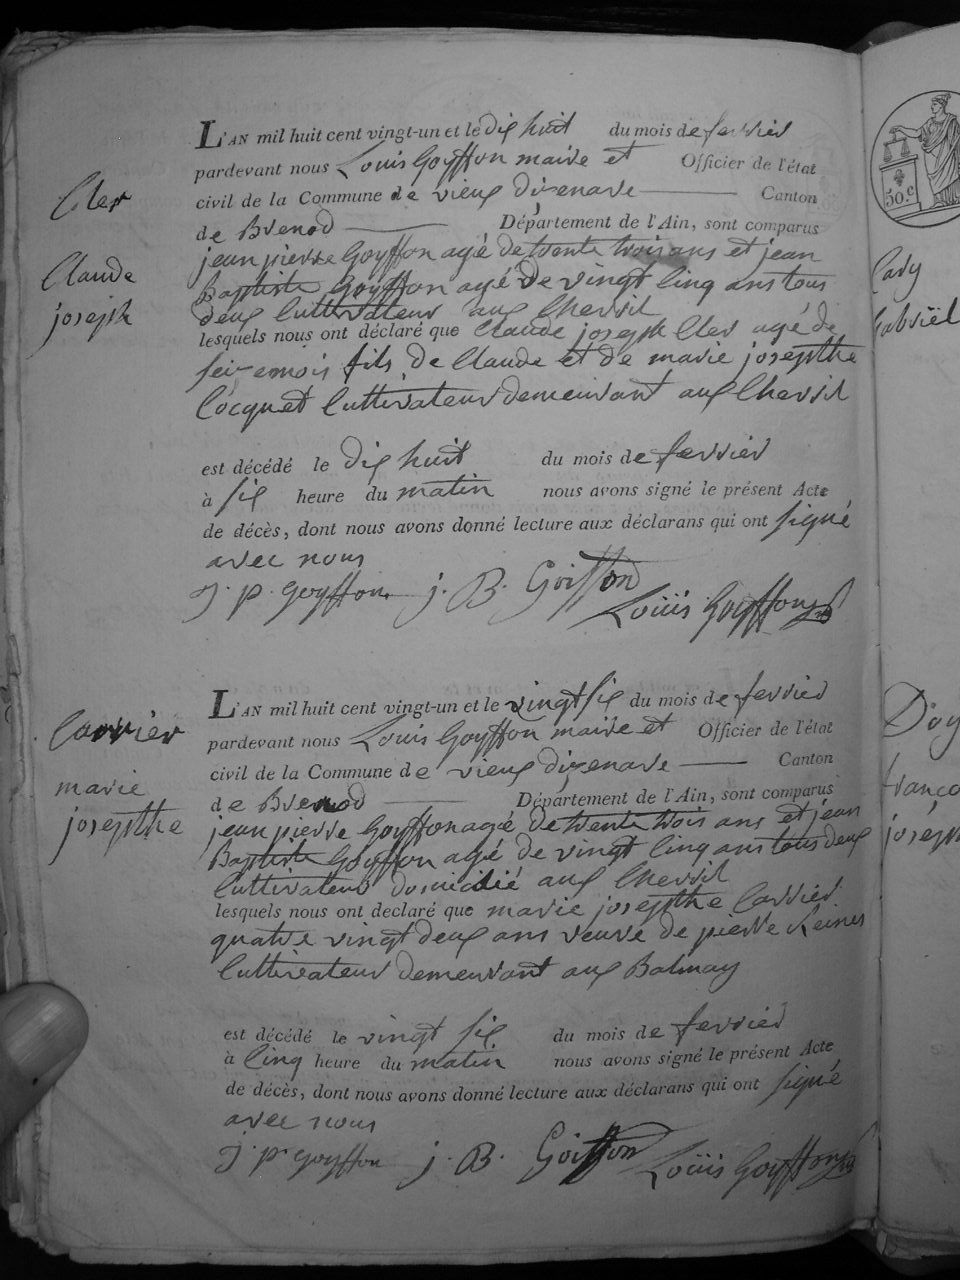 L'AN mil huit cent vingt-un et le dix huit du mois de fevrier
pardevant nous Louis Goyffon maire et Officier de l'état
Cler
civil de la Commune de vieux dizenave Canton
de Brenod Département de l'Ain, sont comparus
jean pierre Goyffon agé de trente trois ans et jean
Claude
Baptiste Goyffon agé de vingt cinq ans tous
joseph
deux Cultivateur aux Chevril
lesquels nous ont déclaré que Claude joseph Cler agé de
seize mois fils de Claude et de marie josephte
Cocquet Cultivateur demeurant aux Chevril
est décédé le dix huit du mois de fevrier
à six heure du matin nous avons signé le présent Acte
de décès, dont nous avons donné lecture aux déclarans qui ont signé
avec nous
j. p. goyffon j. B. Goiffon
Louis Goyffon
L'AN mil huit cent vingt-un et le vingt six du mois de fevrier
Carrier
pardevant nous Louis Goyffon maire et Officier de l'état
civil de la Commune de vieux dizenave Canton
marie
de Brenod Département de l'Ain, sont comparus
josephte
jean pierre Goyffon agé de trente trois ans et jean
Baptiste Goyffon agé de vingt cinq ans tous deux
Cultivateur domicilié aux Chevril
lesquels nous ont declaré que marie josephte Carrier
quatre vingt deux ans veuve de pierre
Cultivateur demeurant aux Balmay
est décédé le vingt six du mois de fevrier
à Cinq heure du matin nous avons signé le présent Acte
de décès, dont nous avons donné lecture aux déclarans qui ont signé
avec nous
j. p. goyffon j. B. Goiffon Louis Goyffon
50.c
Gabriël